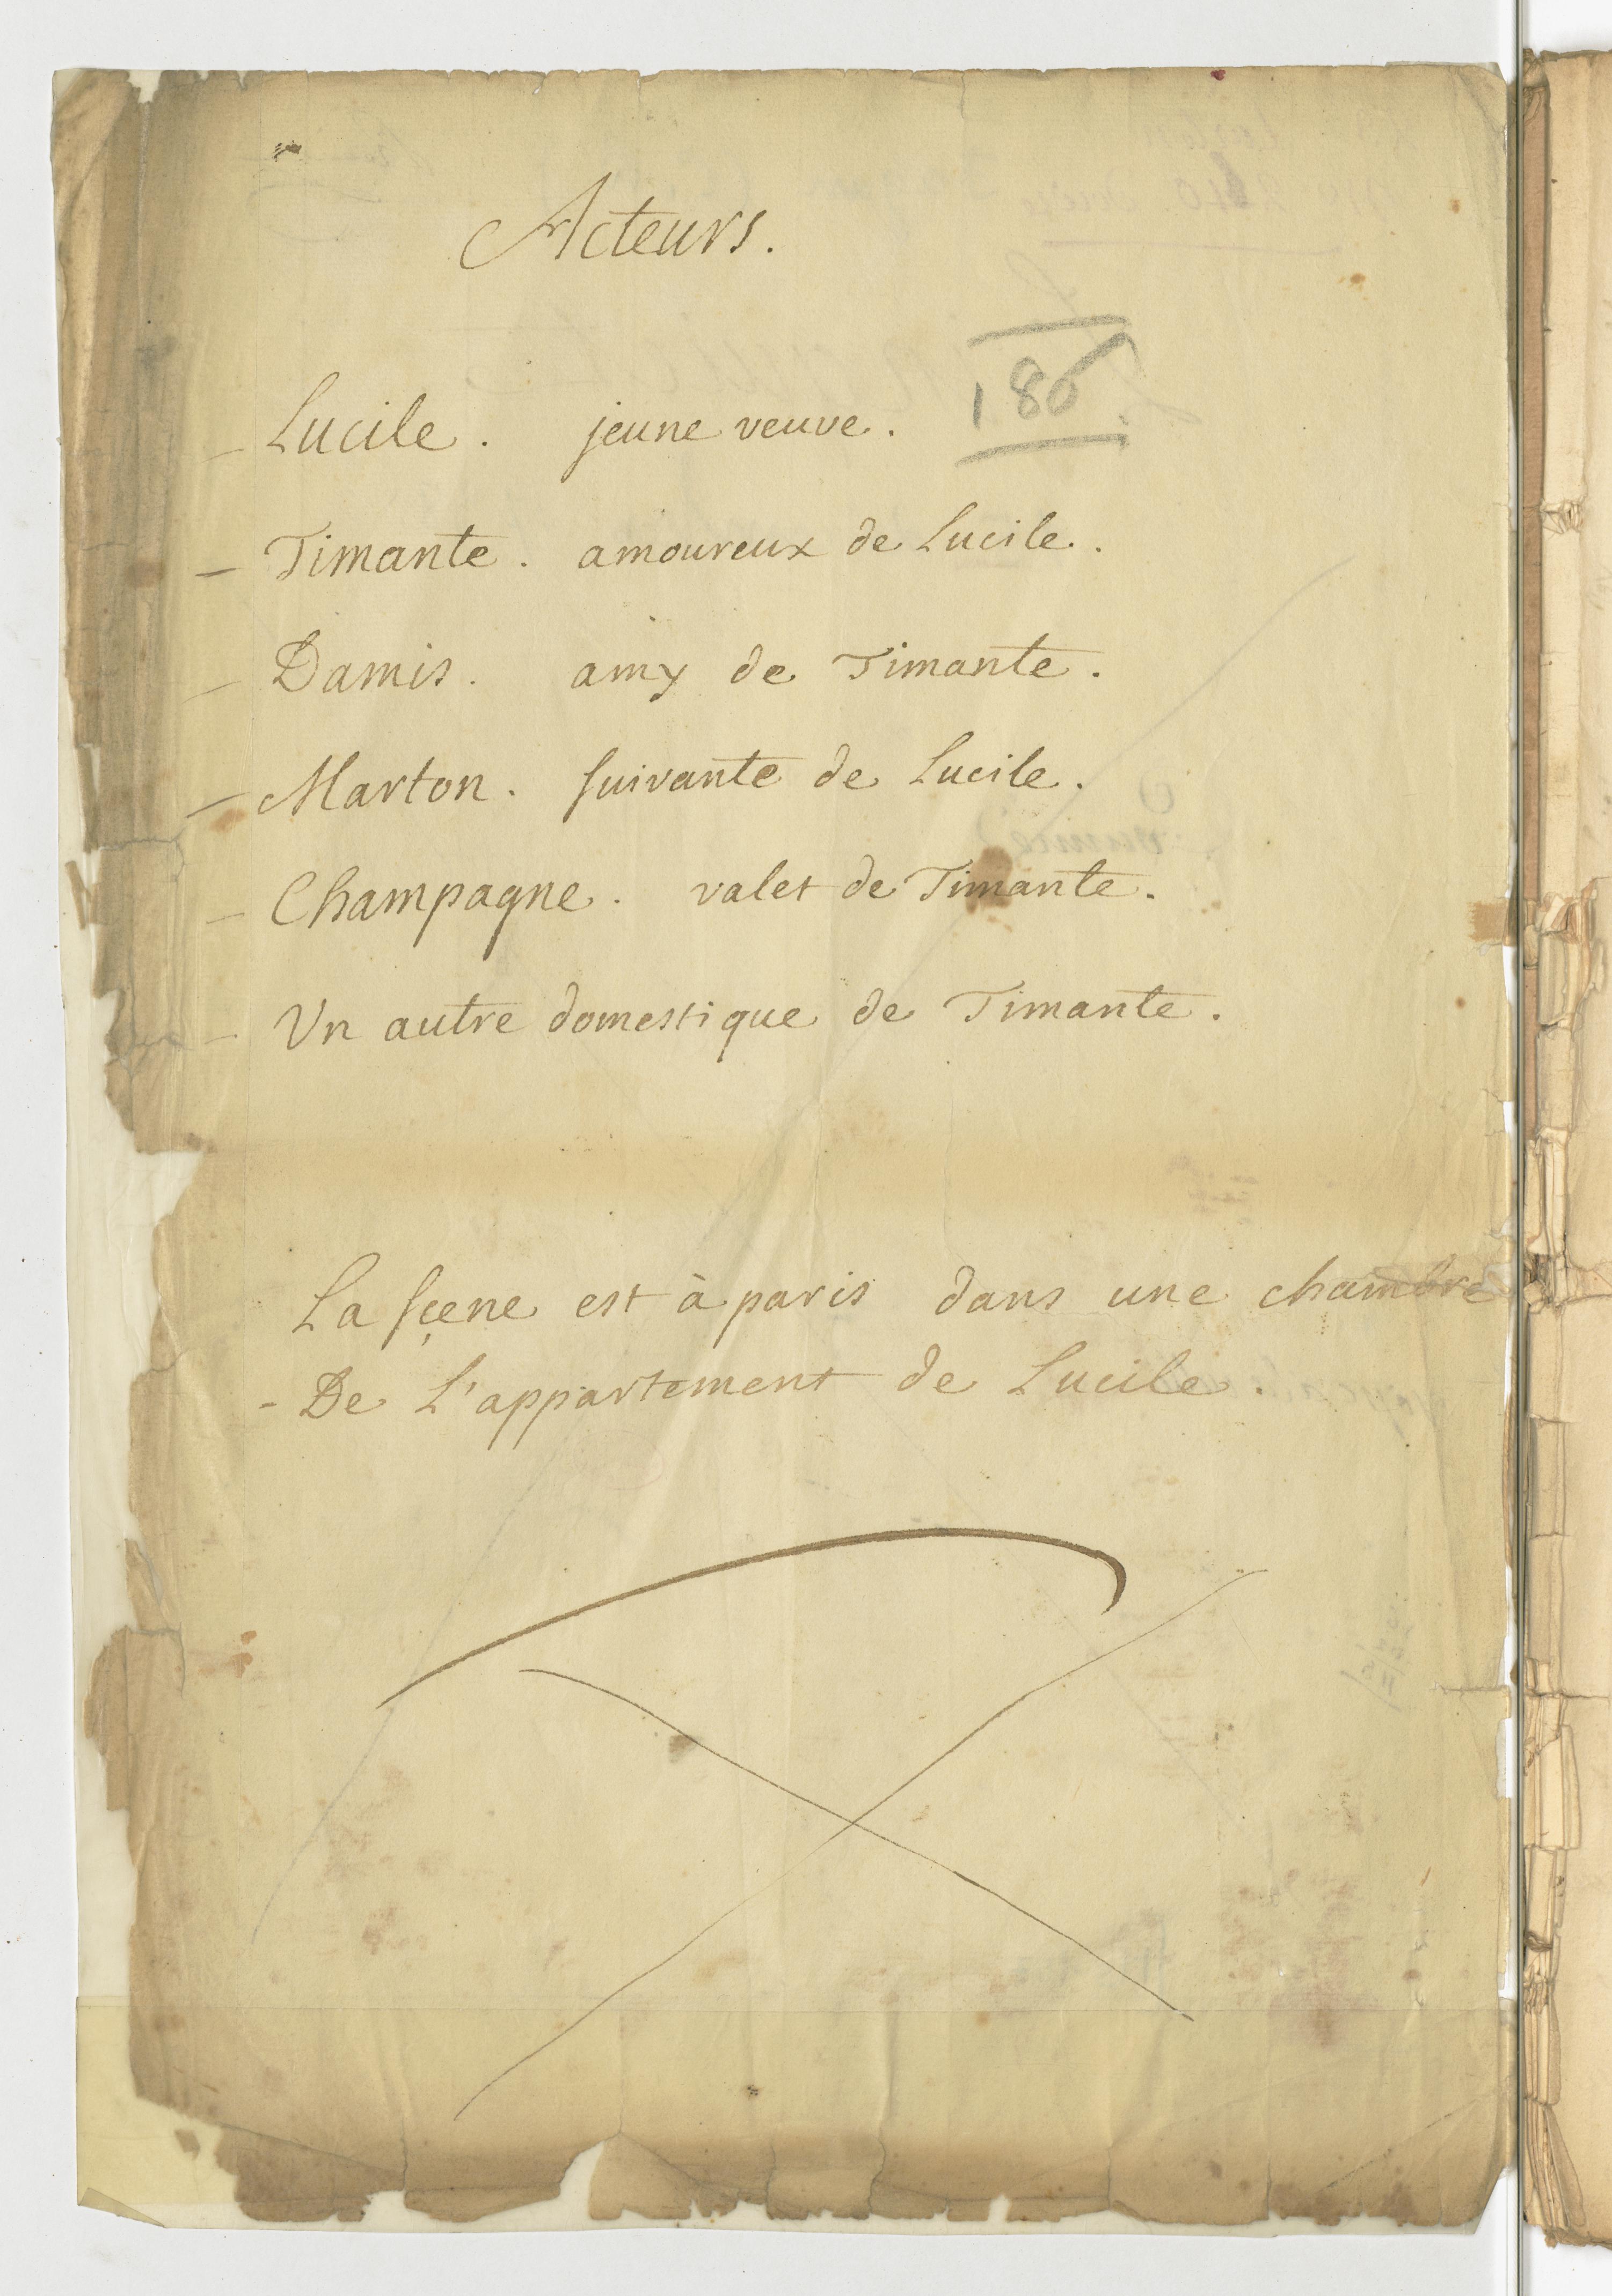 Acteurs.
186
- Lucile. jeune veuve.
- Timante. amoureux de Lucile.
- Damis. amy de Timante.
- Marton. suivante de Lucile.
- Champagne. valet de Timante.
- Un autre domestique de Timante.
La sçene est à paris dans une chambre
- De L'appartement de Lucile.